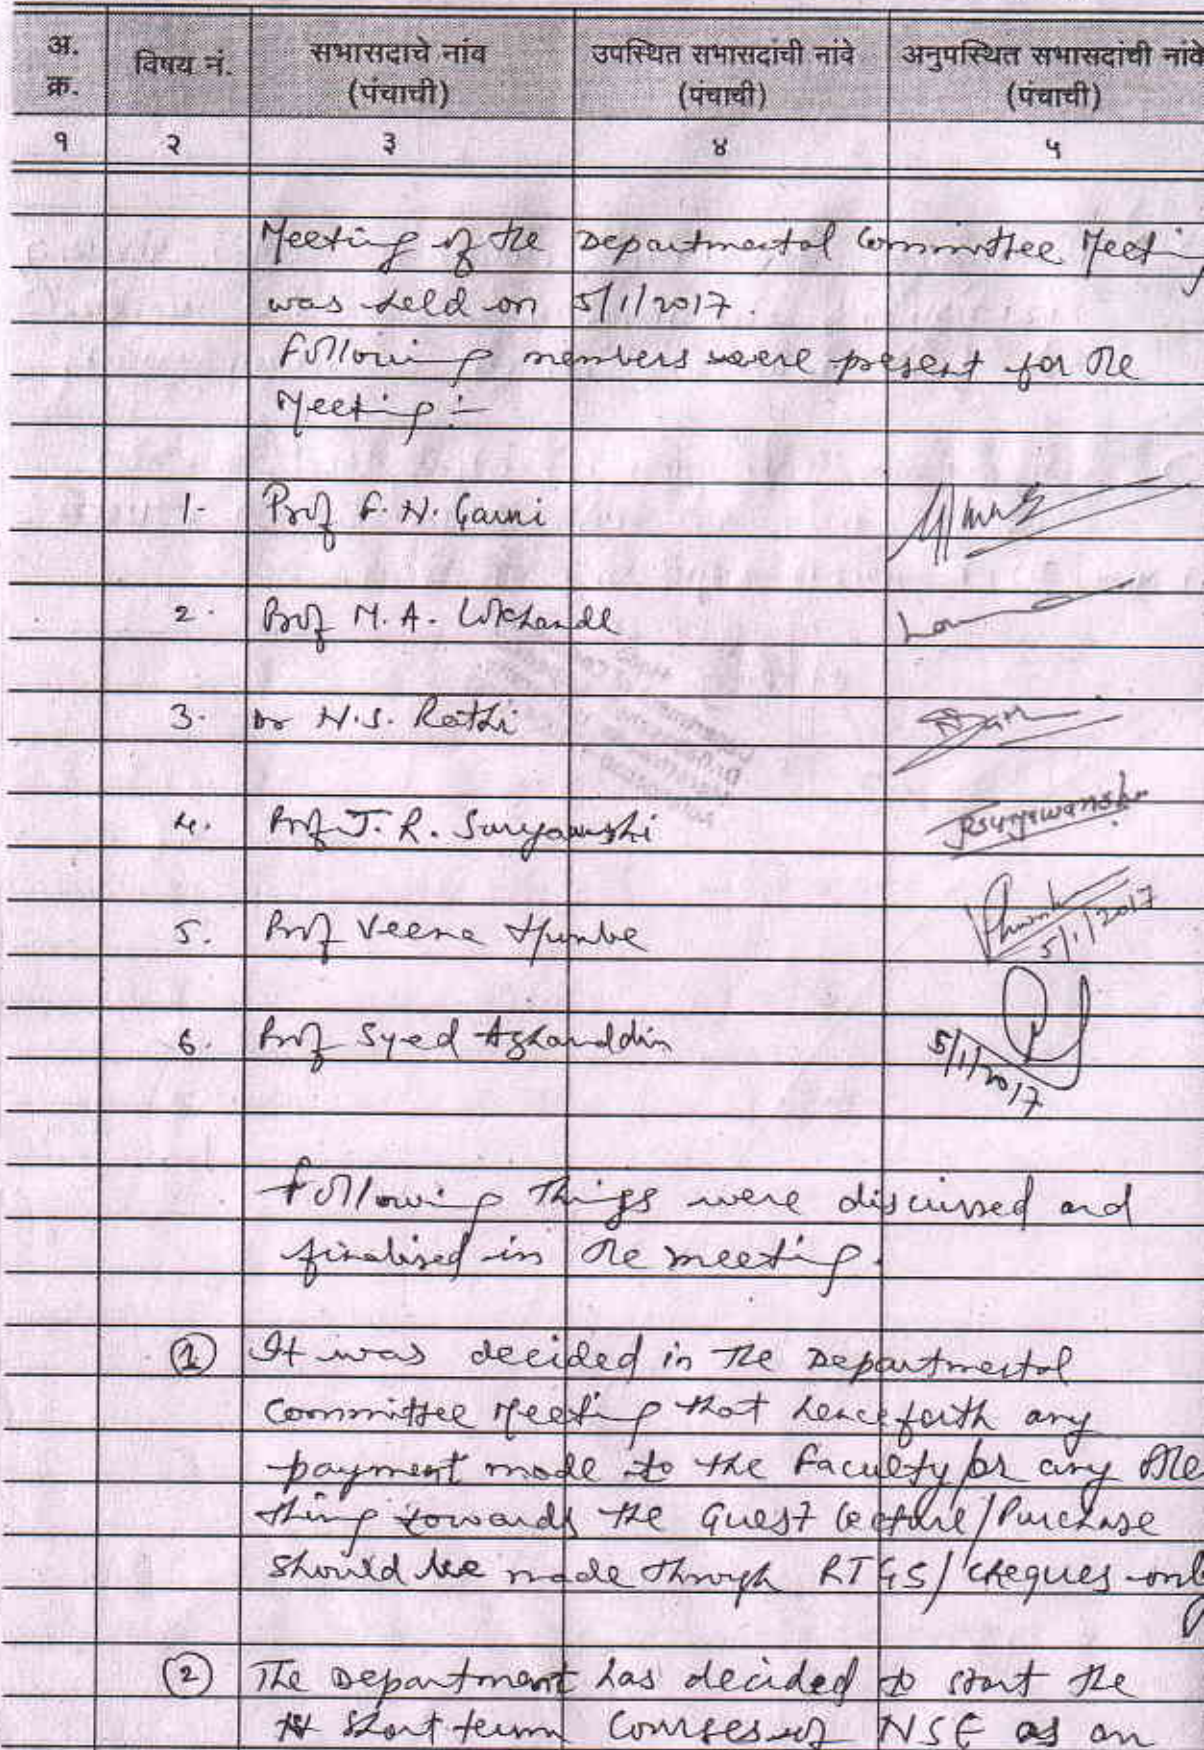 अ. क्र. विषय नं. सभासदाचे नांव (पंचाची) उपस्थित सभासदांची नांवे (पंचाची) अनुपस्थित सभासदांची नांवे (पंचाची)
१ २ ३ ४ ५
Meeting of the Departmental Committee Meeting
was held on 5/1/2017.
Following members were present for the
Meeting :-
1- Prof F. N. Gavni
2. Prof M. A. Lokhande
3- Dr N.S. Rathi
4. Prof J. R. Suryawnshi Rsuryawanshi
5. Prof Veena Humbe 5/1/2017
6. Prof Syed Azharuddin 5/1/2017
Following things were discussed and
finalised in the meeting.
① It was decided in the Departmental
Committee Meeting that henceforth any
payment made to the Faculty or any other
thing towards the Guest lecture/Purchase
should be made through RTGS/cheques only
② The Department has decided to start the
short term Courses of NSE as an